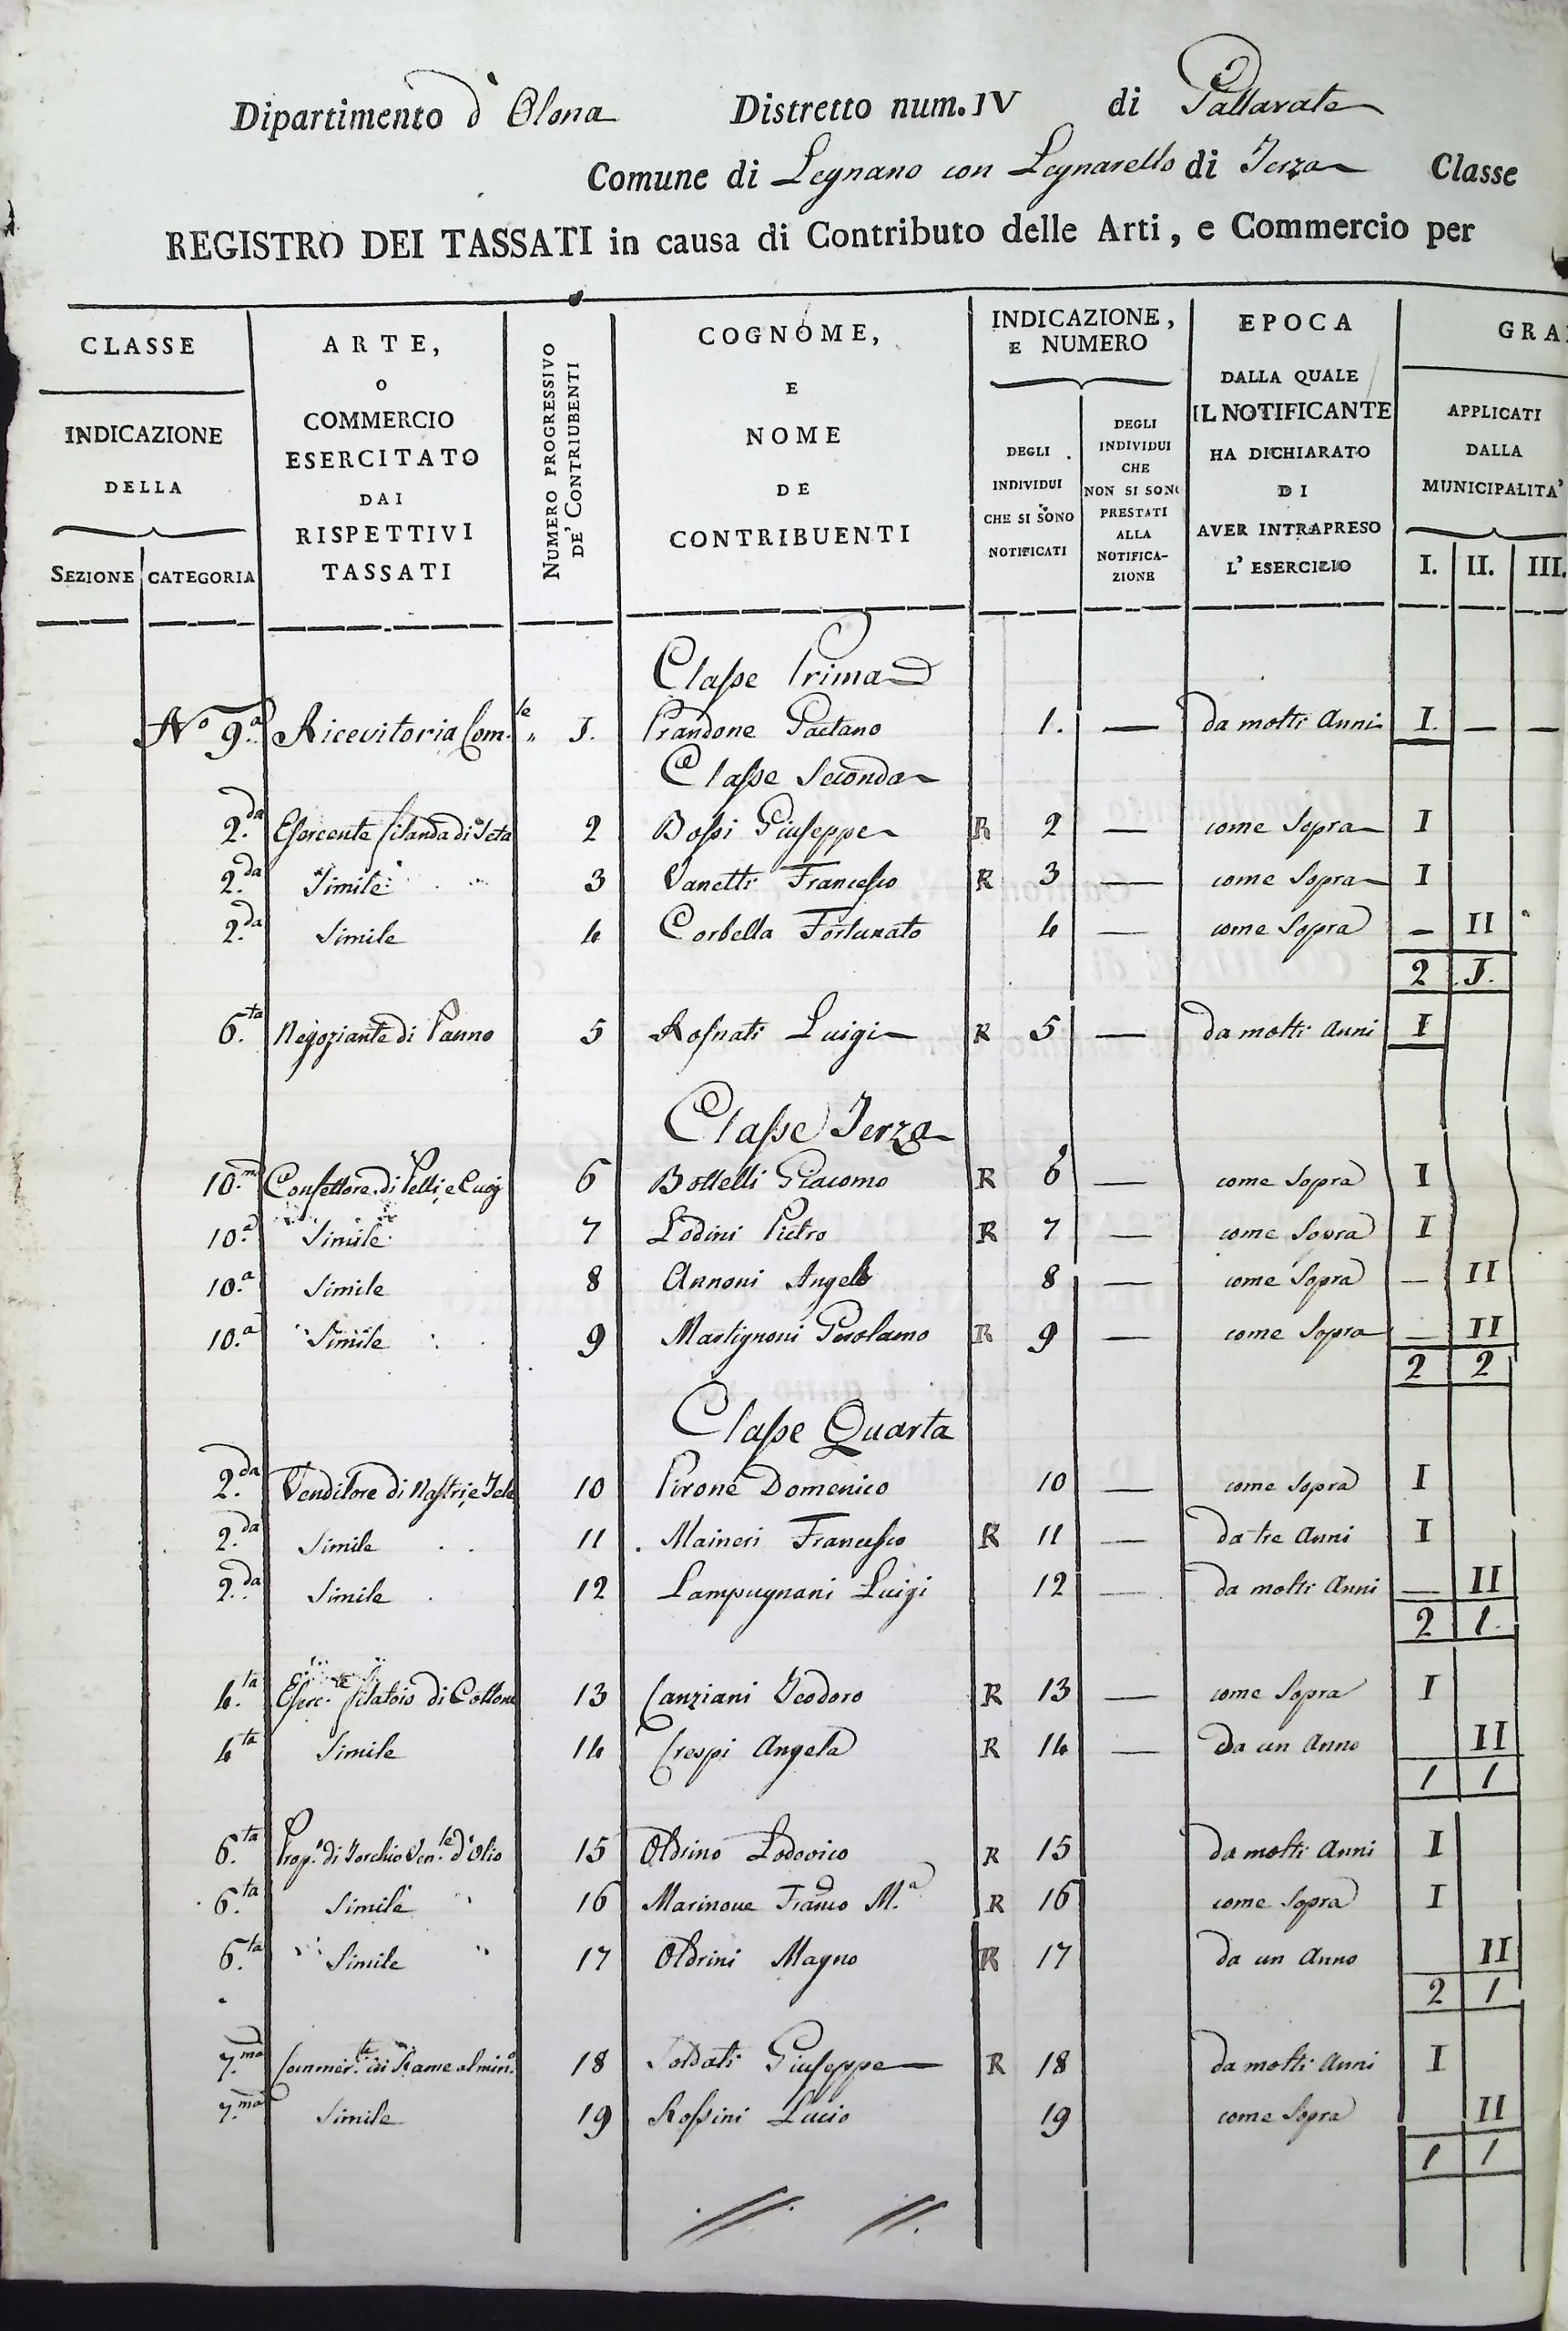 Dipartimento d'Olona Distretto num. IV di Gallarate
Comune di Legnano con Legnarello di Terza Classe
REGISTRO DEI TASSATI in causa di Contributo delle Arti, e Commercio per
CLASSE
INDICAZIONE
DELLA
SEZIONE CATEGORIA
ARTE,
O
COMMERCIO
ESERCITATO
DAI
RISPETTIVI
TASSATI
NUMERO PROGRESSIVO
DE' CONTRIUBENTI
COGNOME,
E
NOME
DE
CONTRIBUENTI
INDICAZIONE,
E NUMERO
DEGLI
INDIVIDUI
CHE SI SONO
NOTIFICATI
DEGLI
INDIVIDUI
CHE
NON SI SONO
PRESTATI
ALLA
NOTIFICA-
ZIONE
EPOCA
DALLA QUALE
IL NOTIFICANTE
HA DICHIARATO
DI
AVER INTRAPRESO
L'ESERCIZIO
GRA
APPLICATI
DALLA
MUNICIPALITA'
I. II. III.
Classe Prima
No 9.a Ricevitoria Com.le 1. Prandone Gaetano 1. — da molti Anni I. — —
Classe Seconda
2.da Esercente filanda di Seta 2 Bossi Giuseppe R 2 — come Sopra I
2.da Simile 3 Vanetti Francesco R 3 — come Sopra I
2.da Simile 4 Corbella Fortunato 4 — come Sopra — II
2 1.
6.ta Negoziante di Panno 5 Rosnati Luigi R 5 — da molti Anni I
Classe Terza
10.ma Confettore di Pelli e Cuoj 6 Bottelli Giacomo R 6 — come Sopra I
10.a Simile 7 Lodini Pietro R 7 — come Sopra I
10.a Simile 8 Annoni Angelo 8 — come Sopra — II
10.a Simile 9 Martignoni Gerolamo R 9 — come Sopra — II
2 2
Classe Quarta
2.da Venditore di Nastri, e Tele 10 Pirone Domenico 10 — come Sopra I
2.da Simile 11 Maineri Francesco R 11 — da tre Anni I
2.da Simile 12 Lampugnani Luigi 12 — da molti Anni — II
2 1.
4.ta Eserc.te filatoio di Cottone 13 Canziani Teodoro R 13 — come Sopra I
4.ta Simile 14 Crespi Angela R 14 — da un Anno II
1 1
6.ta Prop.o di Torchio Ven.te d'Olio 15 Oldrino Lodovico R 15 da molti Anni I
6.ta Simile 16 Marinone Franco M.a R 16 come Sopra I
6.ta Simile 17 Oldrini Magno R 17 da un Anno II
2 1
7.ma Commer.te in Rame al min.o 18 Soldati Giuseppe R 18 da molti Anni I
7.ma Simile 19 Rossini Lucio 19 come Sopra II
1 1